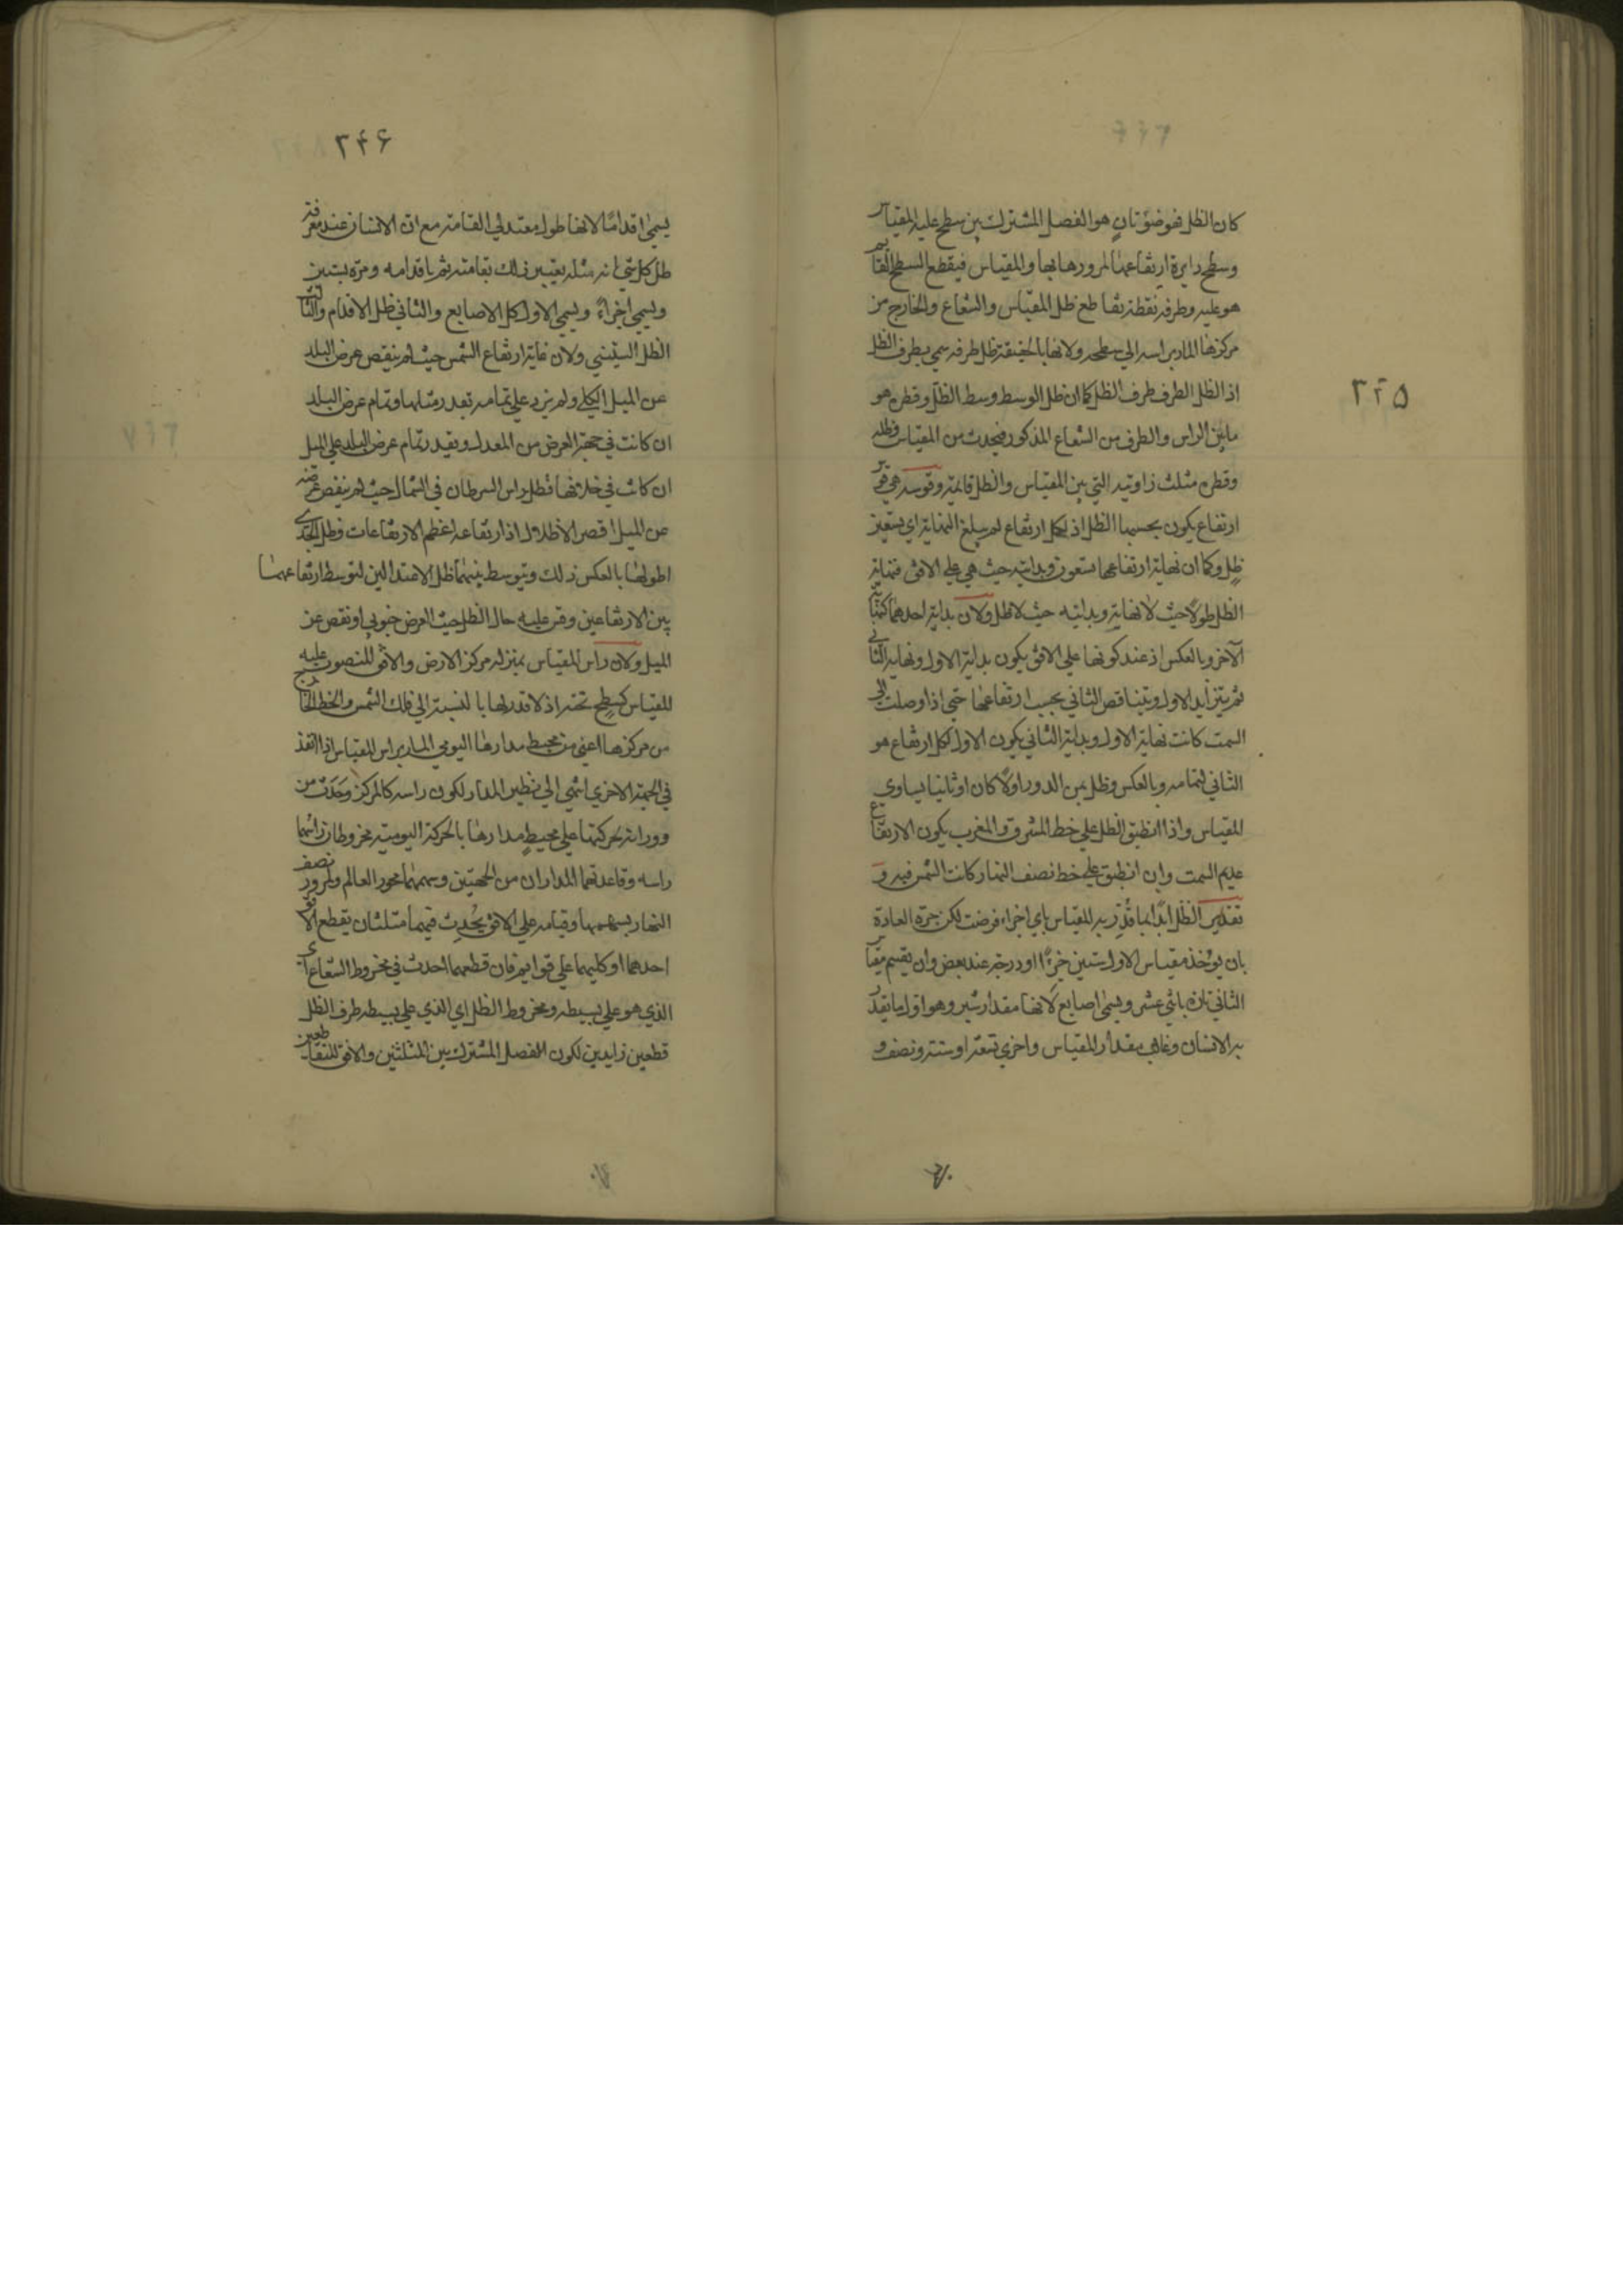 ٢٤٥
كان الظل فهو ضوء ثان هو الفصل المشترك بين سطح عليه المقياس
وسطح دايرة ارتفاعها لمرورها بها والمقياس فيقطع السطح القايم
هو عليه وطرفه نقطة تقاطع ظل المقياس والشعاع والخارج من
مركزها المار براسه الي سطحه ولانها بالحقيقة ظل طرفه سمي بطرف الظل
اذ الظل الطرف طرف الظل كما ان ظل الوسط وسط الظل وقطره هو
مابين الراس والطرف من الشعاع المذكور فيحدث من المقياس وظله
وقطره مثلث زاويته التي بين المقياس والظل قايمة وقوسه هي قوس
ارتفاع يكون بحسبها الظل اذ لكل ارتفاع لم يبلغ النهاية اي تسعين
ظل وكما ان نهاية ارتفاعها تسعون وبدايته حيث هي علي الافق فنهاية
الظل طولا حيث لا نهاية وبدايته حيث لا ظل ولان بداية احدهما كنهاية
الآخر وبالعكس اذ عند كونها علي الافق يكون بداية الاول ونهاية الثاني
ثم يتزايد الاول ويتناقص الثاني بحسب ارتفاعها حتي اذا وصلت الي
السمت كانت نهاية الاول وبداية الثاني يكون الاول لكل ارتفاع هو
الثاني لتمامه وبالعكس وظل ثمن الدور اولا كان او ثانيا يساوي
المقياس واذا انطبق الظل علي خط المشرق والمغرب يكون الارتفاع
عديم السمت وان انطبق علي خط نصف النهار كانت الشمس فيه و
تقدير الظل ابدا بما قدر به المقياس باي اجزاء فرضت لكن جرت العادة
بان يؤخذ مقياس الاول ستين جزءا او درجة عند بعض وان يقسم مقياس
الثاني تارة باثني عشر ويسمي اصابع لانها مقدار شبر وهو اول ما يقدر
به الانسان وغالب مقدار المقياس واخري بسبعة او ستة ونصف و
٢٤٦
يسمي اقداما لانها طول معتدلي القامة مع ان الانسان عند معرفة
ظل كل شئ انه مثله يعتبر ذلك بقامته ثم باقدامه ومرة بستين
ويسمي اجزاء ويسمي الاول ظل الاصابع والثاني ظل الاقدام والثالث
الظل الستيني ولان غاية ارتفاع الشمس حيث لم ينقص عرض البلد
عن الميل الكلي ولم يزد علي تمامه تعدد مثلها وتمام عرض البلد
ان كانت في جهة العرض من المعدل وبقدر تمام عرض البلد علي الميل
ان كانت في خلافها فظل راس السرطان في الشمال حيث لم ينقص عرضه
عن الميل اقصر الاظلال اذ ارتفاعه اعظم الارتفاعات وظل الجدي
اطولها بالعكس ذلك ويتوسط بينهما ظل الاعتدالين لتوسط ارتفاعهما
بين الارتفاعين وقس عليه حال الظل حيث العرض جنوبي او نقص عن
الميل ولان راس المقياس بمنزلة مركز الارض والافق المنصوب عليه
المقياس كسطح تحته اذ لا قدر لها بالنسبة الي فلك الشمس والخط الخارج
من مركزها اعني من محيط مدارها اليومي المار براس المقياس اذا انفذ
في الجهة الاخري انتهي الي نظير المدار لكون راسه كالمركز وحدث من
دورانه بحركتها علي محيط مدارها بالحركة اليومية مخروطان راسهما
راسه وقاعدتهما المداران من الجهتين وسهمهما محور العالم ولمرور نصف
النهار بسهمهما وقيامه علي الافق يحدث فيهما مثلثان يقطع الافق
احدهما او كليهما علي قوايم فان قطعهما احدث في مخروط الشعاع اي
الذي هو علي بسيطه ومخروط الظل اي الذي علي بسيطه طرف الظل
قطعين زايدين لكون الفصل المشترك بين المثلثين والافق المتقاطعين